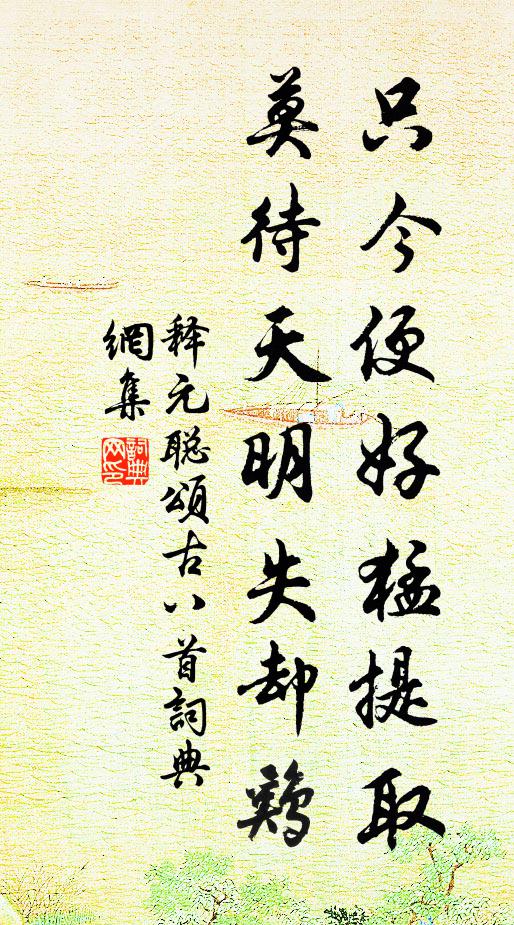 只今便好猛提取
莫待天明失却鷄
释元聪頌古八首詞典
網集
詞典
网印